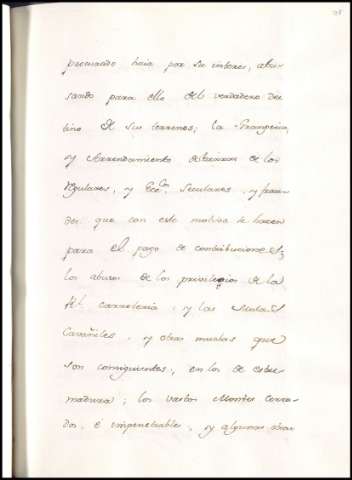 procurando hacia por su interes, abu-
sando para ello del verdadero des
tino de sus terrenos; la Grangeria,
y Arrendamiento de tierras de los
Regulares, y Ecc.cos Seculares, y frau-
des que con este motivo se hacen
para el pago de contribuciones;
los abusos de los privilegios de la
Rl. carreteria, y las
Cavañiles, y otros muchos que
son consiguientes, en los de estre
madura; los vastos Montes cerra-
dos, é impenetrables, y algunas otras